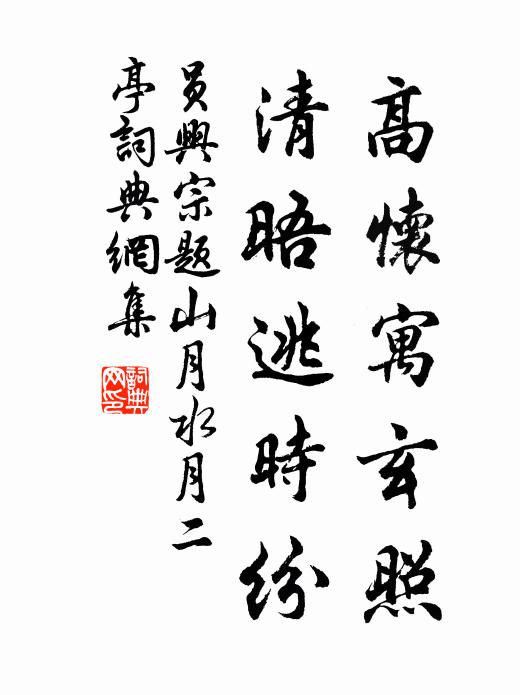 高懷寓玄照
清晤逃時紛
員興宗題山月水月二
亭詞典網集
詞典
网印